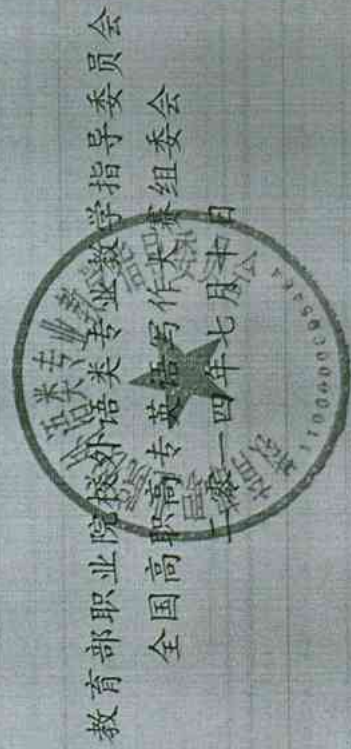 教育部职业院校外语类专业教学指导委员会
全国高职高专英语写作大赛组委会
二零一四年七月十日